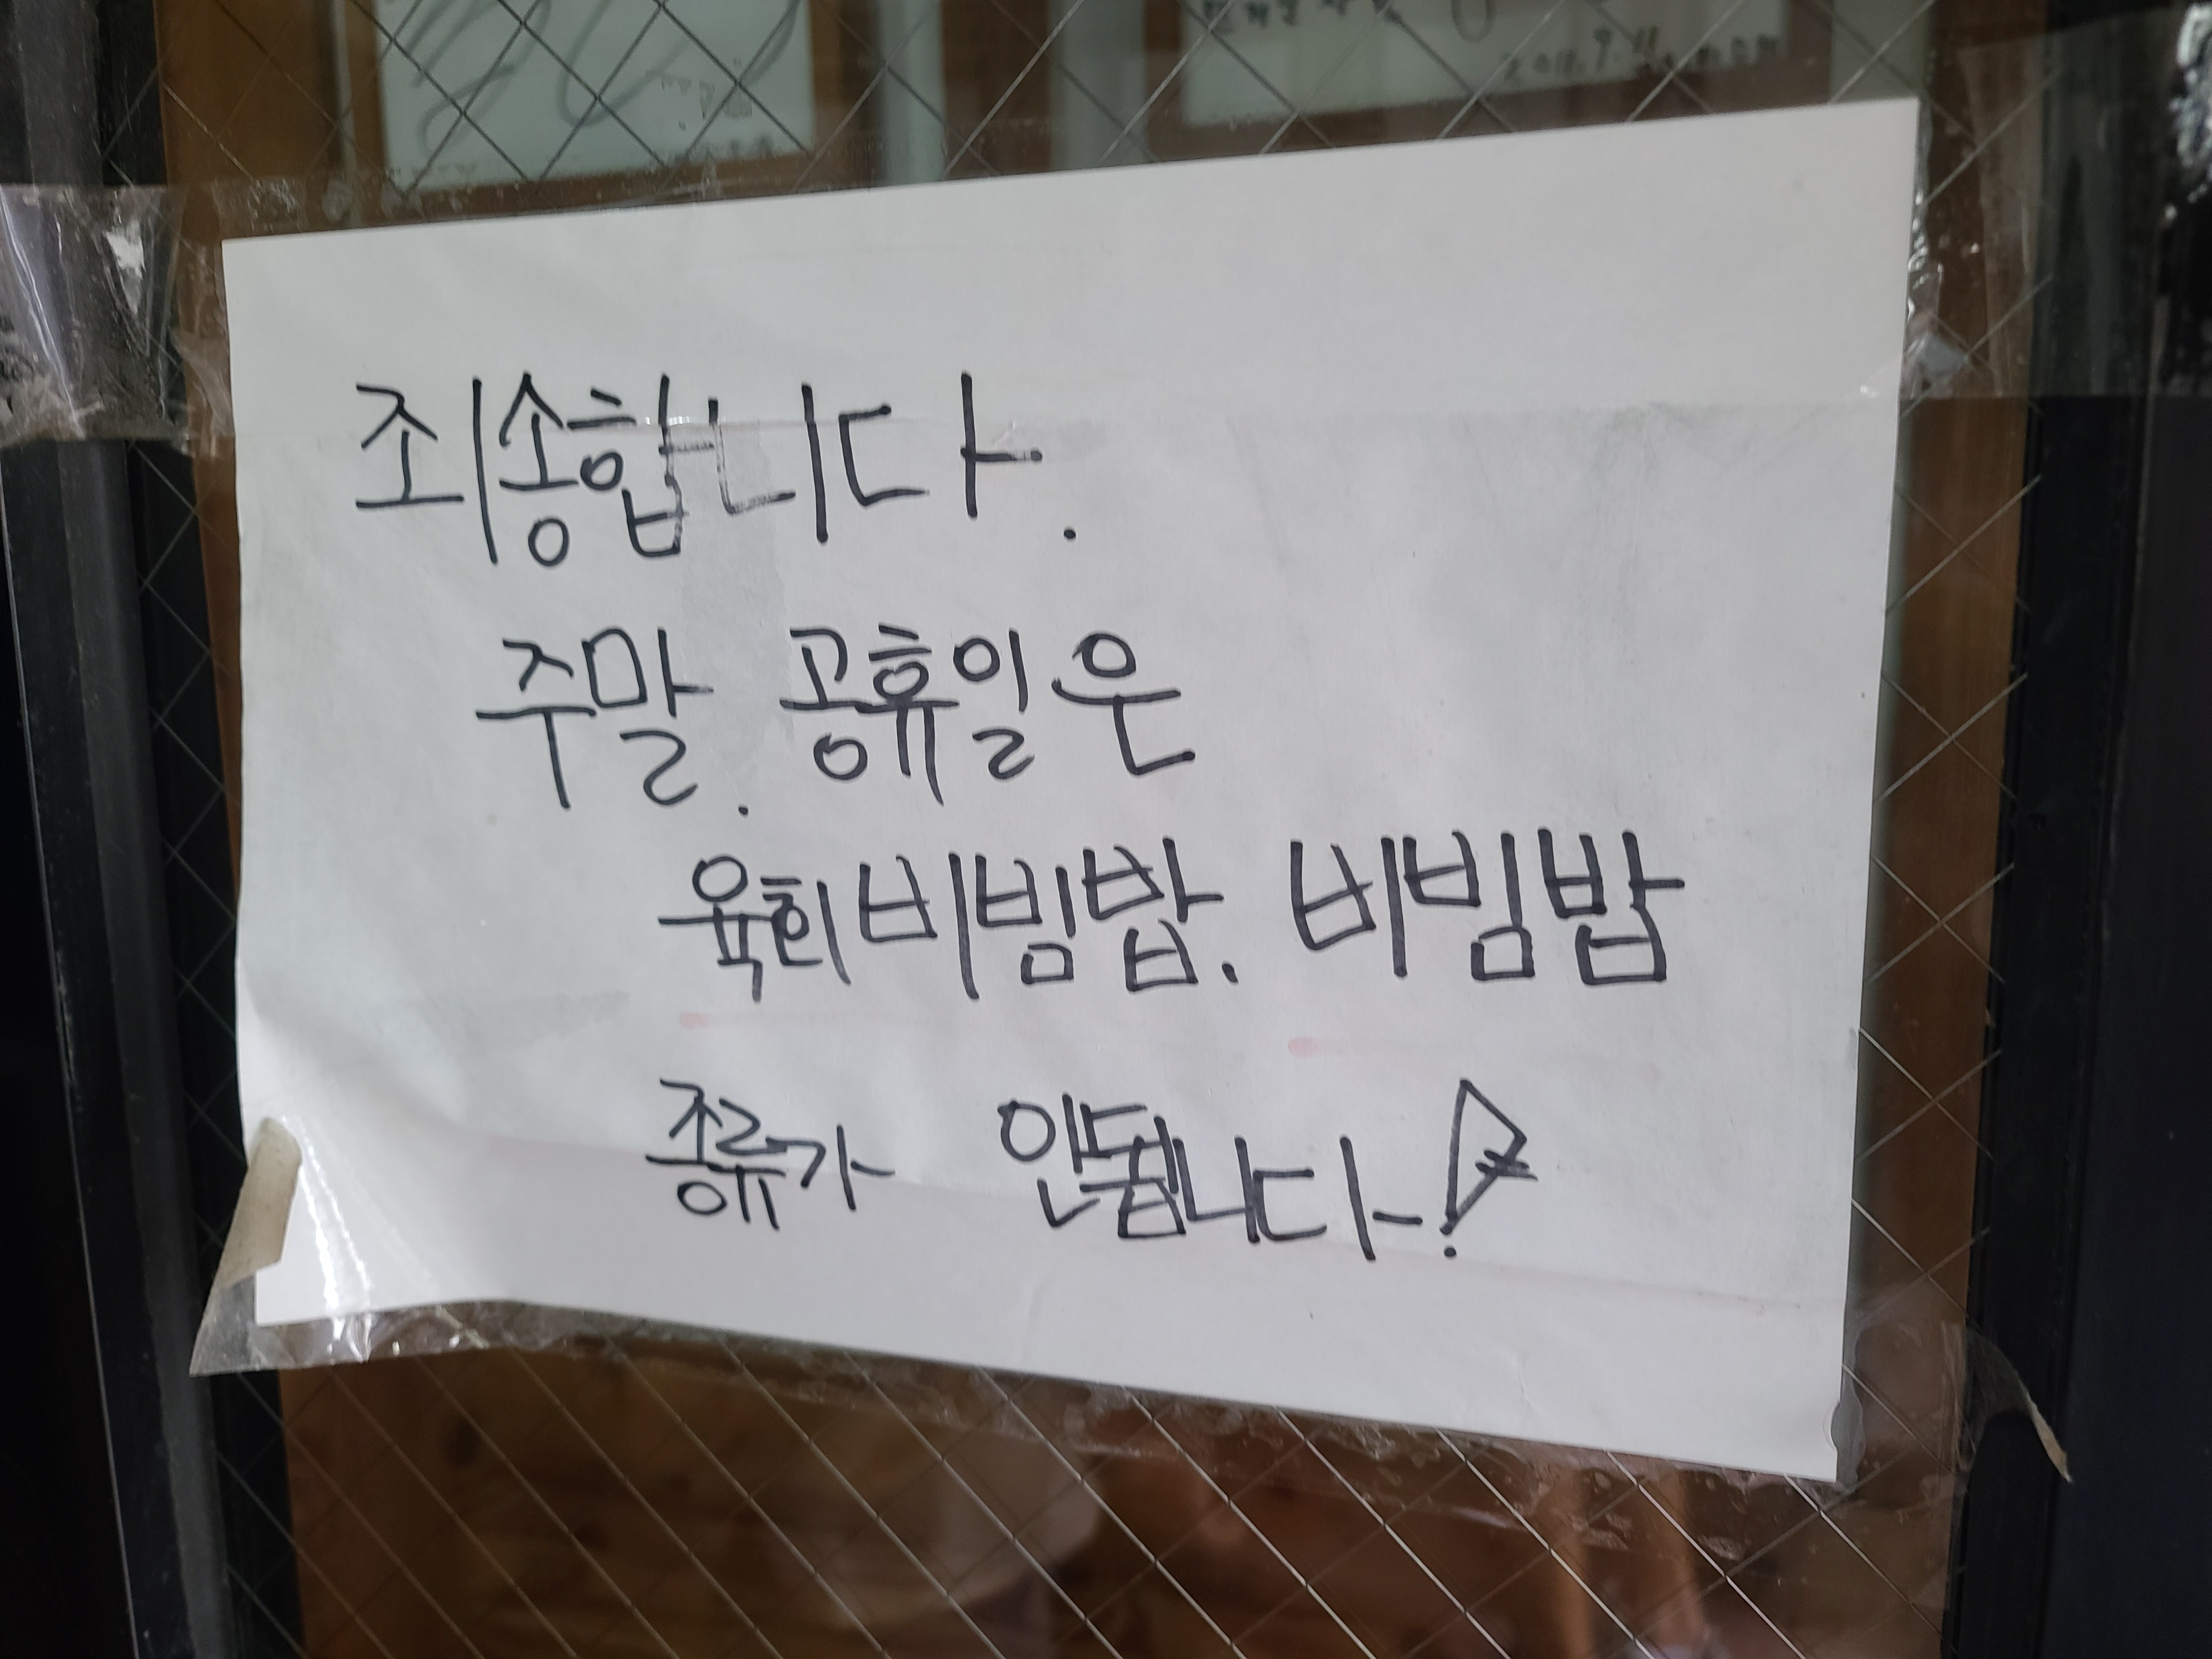 죄송합니다.
주말. 공휴일은
육회비빔밥. 비빔밥
종류가 안됩니다!